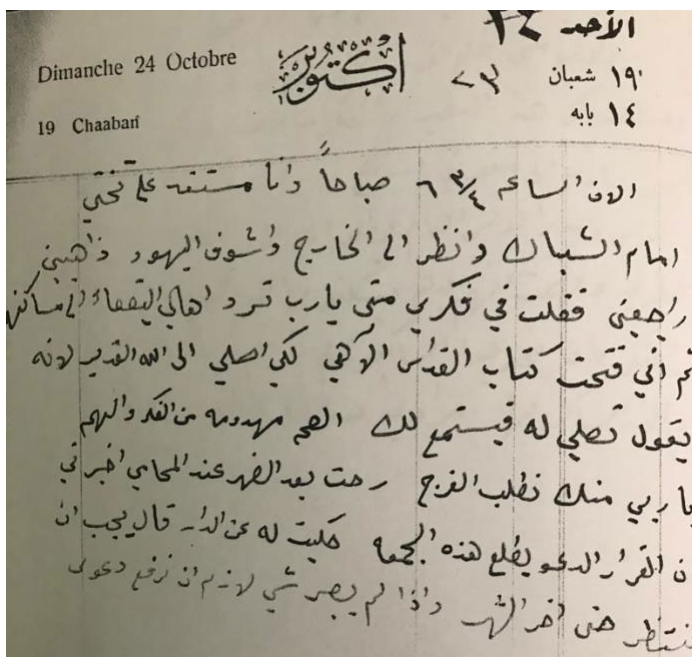 الأحد ٢٤
Dimanche 24 Octobre
اكتوبر
١٩ شعبان
19 Chaaban
١٤ بابه
الان الساعه ٦ ٣/٤ صباحاً وانا مستنده على تختي
امام الشباك وانظر الى الخارج واشوف اليهود ذاهبين
راجعين فقلت في فكري متى يارب ترد اهالي البقعه الى مساكنها
ثم اني فتحت كتاب القداس الآلاهي لكي اصلي الى الله القدير لانه
يقول تصلي له فيستمع لك الصحه مهدومه من الفكر والهم
يا ربي منك نطلب الفرج رحت بعد الضهر عند المحامي اخبرني
ن القرار الدعو يطلع هذه الجمعه حكيت له عن الدار قال يجب ان
ننتظر حتى اخر الشهر واذا لم يصر شي لازم ان نرفع دعوى